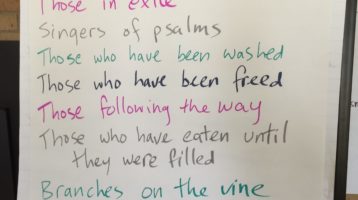 Those in exile
Singers of psalms
Those who have been washed
Those who have been freed
Those following the way
Those who have eaten until
they were filled
Branches on the vine